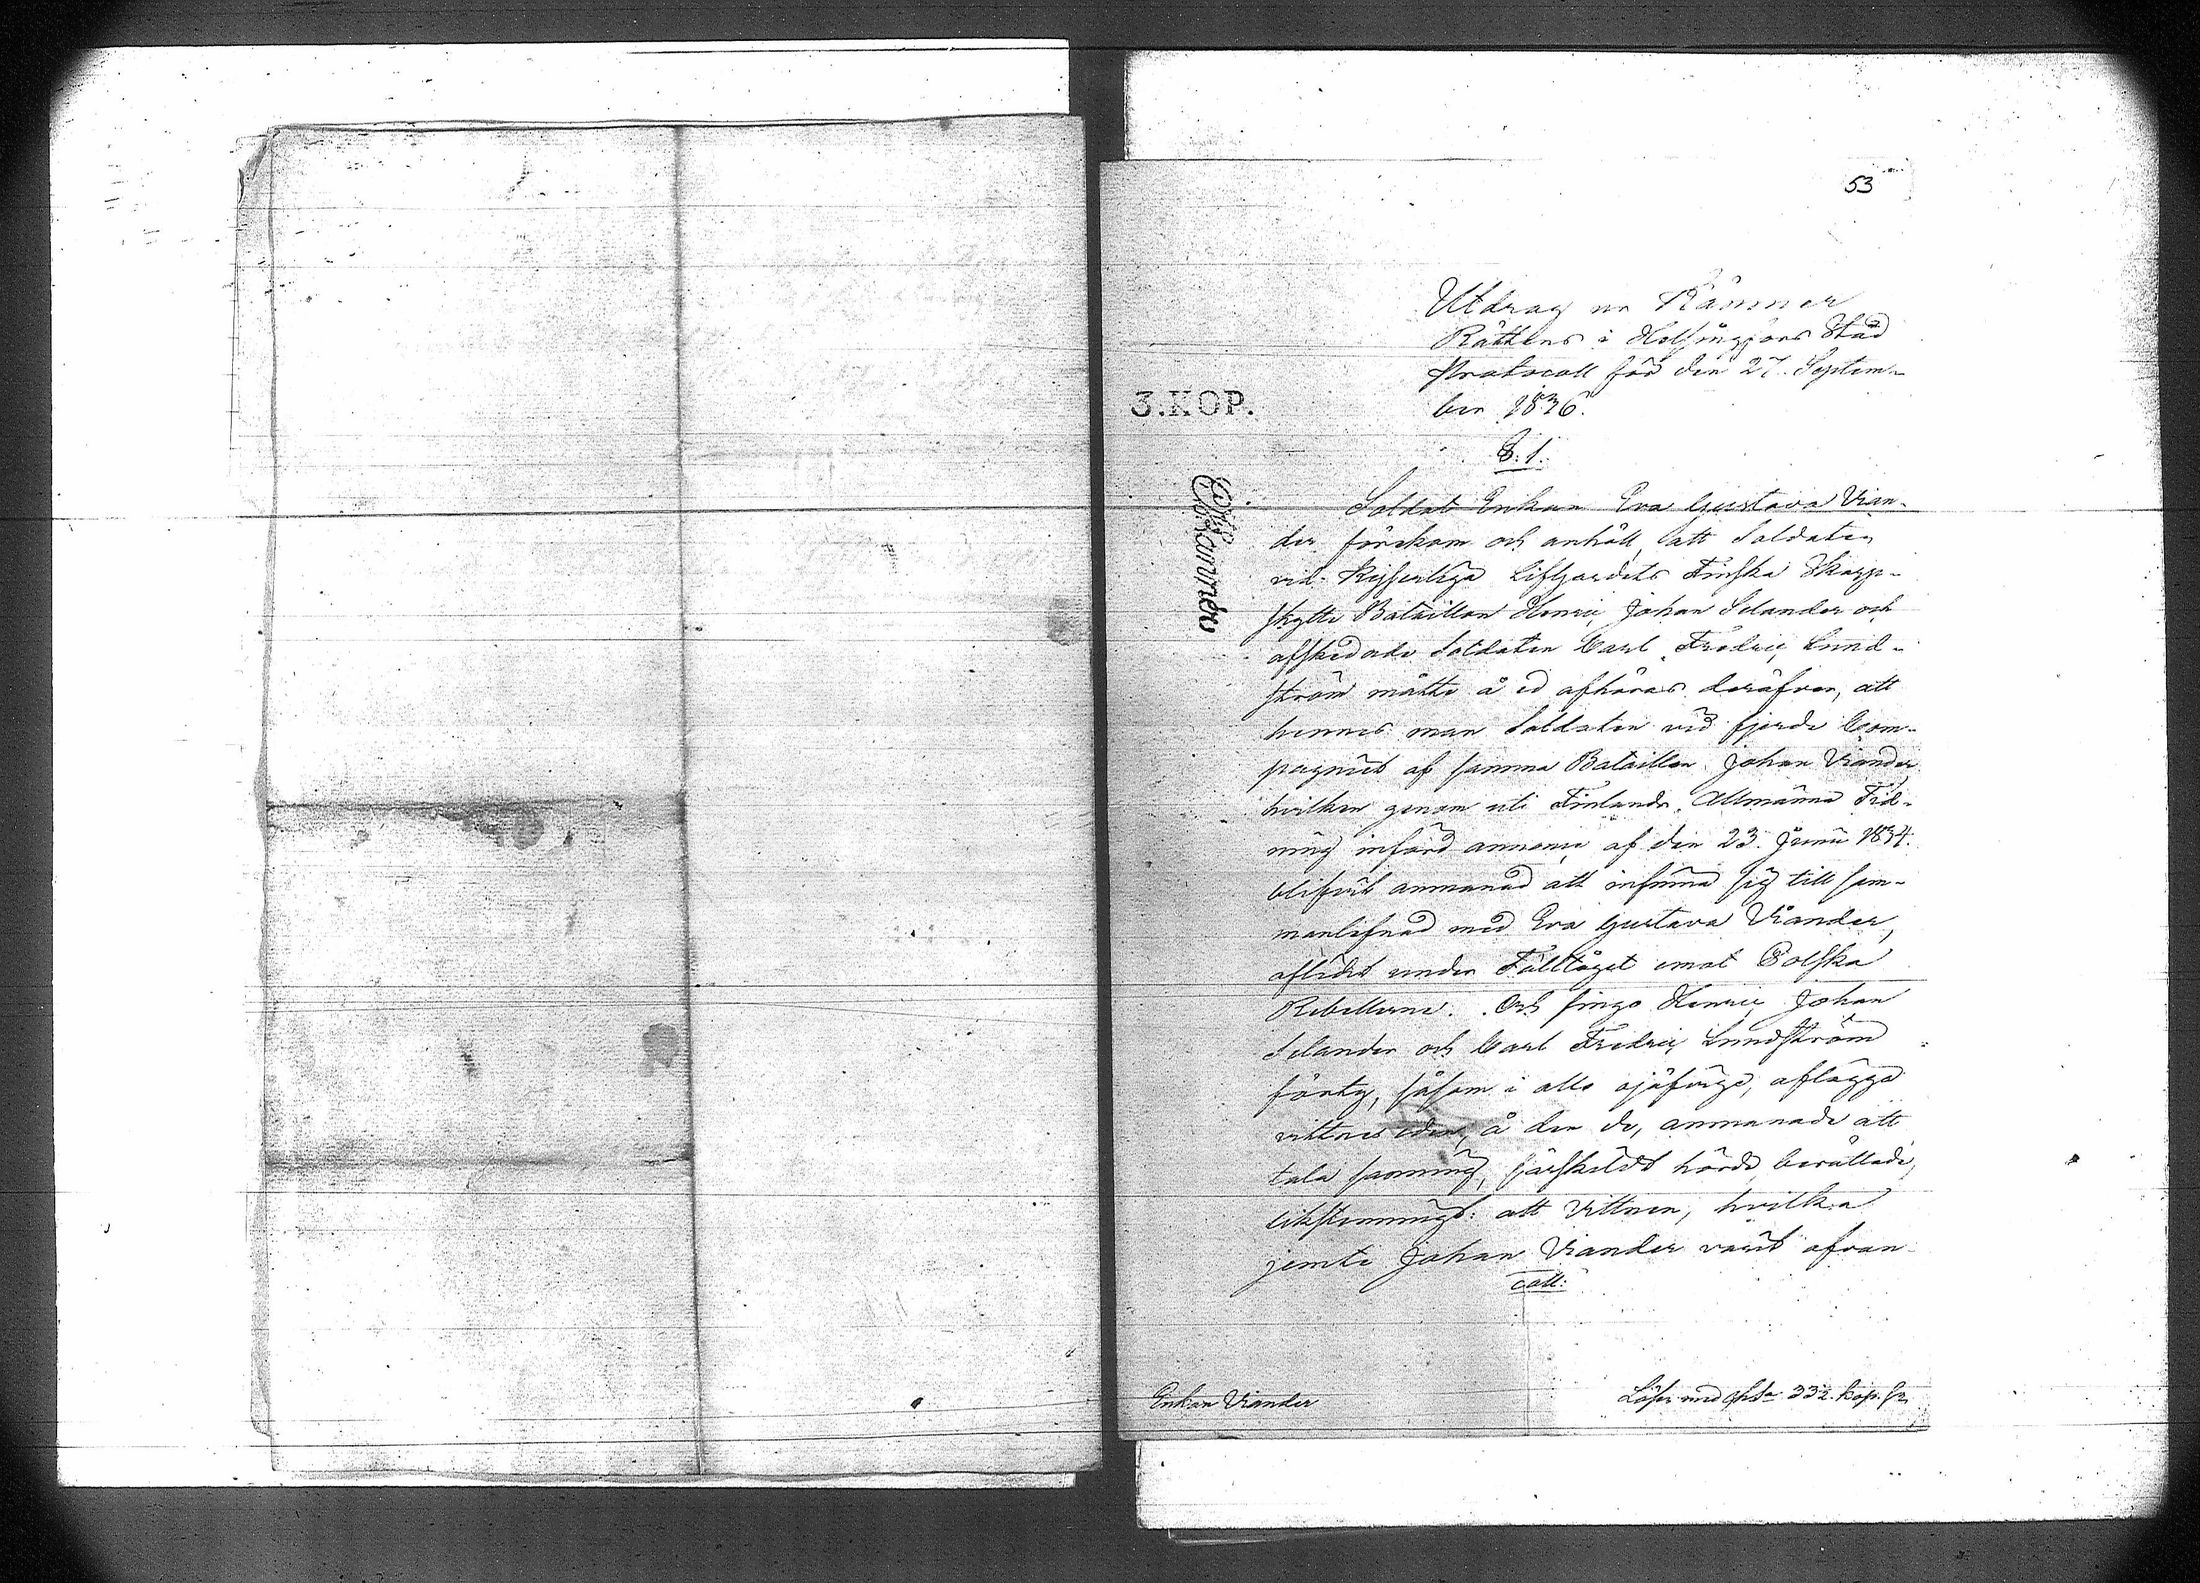 53
Utdrag ur Kämner
Rättens i Helsingfors Stad
Protocoll för den 27. Septem-
ber 1836.
3.KOP.
§. 1.
Soldat Enkan Eva Gustava Vian-
der förekom och anhöll, att Soldaten
vid Kejserliga Lifgardets Finska Skarp-
skytte Bataillon Henric Johan Selander och
afskedade Soldaten Carl Fredric Lund-
ström måtte å ed afhöras deröfver, att
hennes man Soldaten vid fjerde Com-
pagniet af samma Bataillon Johan Viander
hvilken genom uti Finlands Allmänna Tid-
ning införd annonce af den 23. Junii 1834.
blifvit anmanad att infinna sig till sam-
manlefnad med Eva Gustava Viander,
aflidit under Fälttåget emot Polska
Rebellerne. Och fingo Henric Johan
Selander och Carl Fredric Lundström
förty, såsom i allo ojäfvige, aflägga
vittnes eden, å den de, anmanade att
tala sanning, särskildt hörde berättade,
likstemmigt: att Vittnen, hvilka
jemte Johan Viander varit afvan
Enkan Viander
Löses med 332. kop. Sr